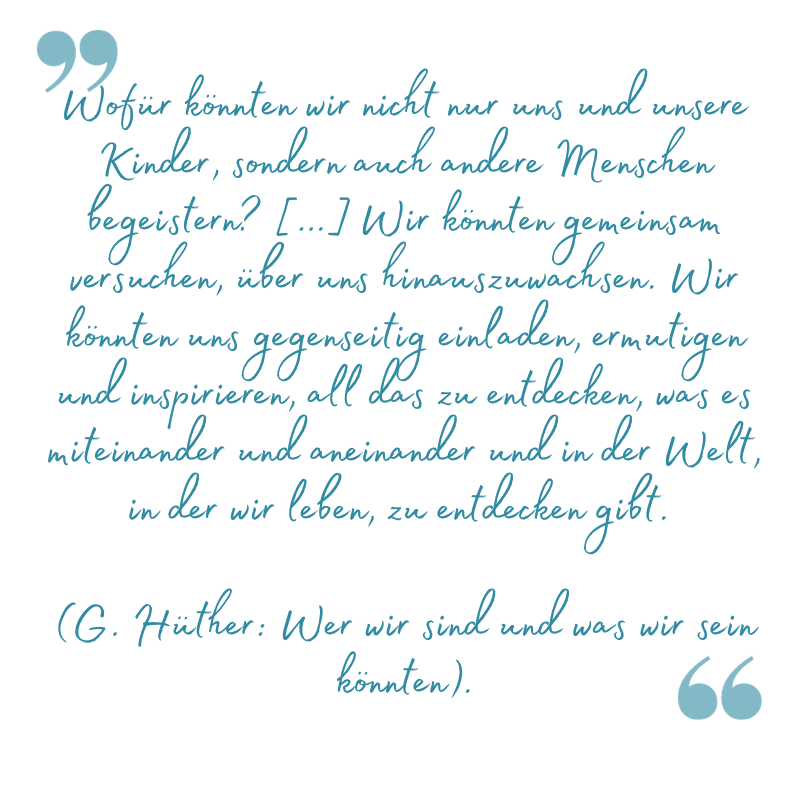 Wofür könnten wir nicht nur uns und unsere
Kinder, sondern auch andere Menschen
begeistern? [...] Wir könnten gemeinsam
versuchen, über uns hinauszuwachsen. Wir
könnten uns gegenseitig einladen, ermutigen
und inspirieren, all das zu entdecken, was es
miteinander und aneinander und in der Welt,
in der wir leben, zu entdecken gibt.
(G. Hüther: Wer wir sind und was wir sein
könnten).